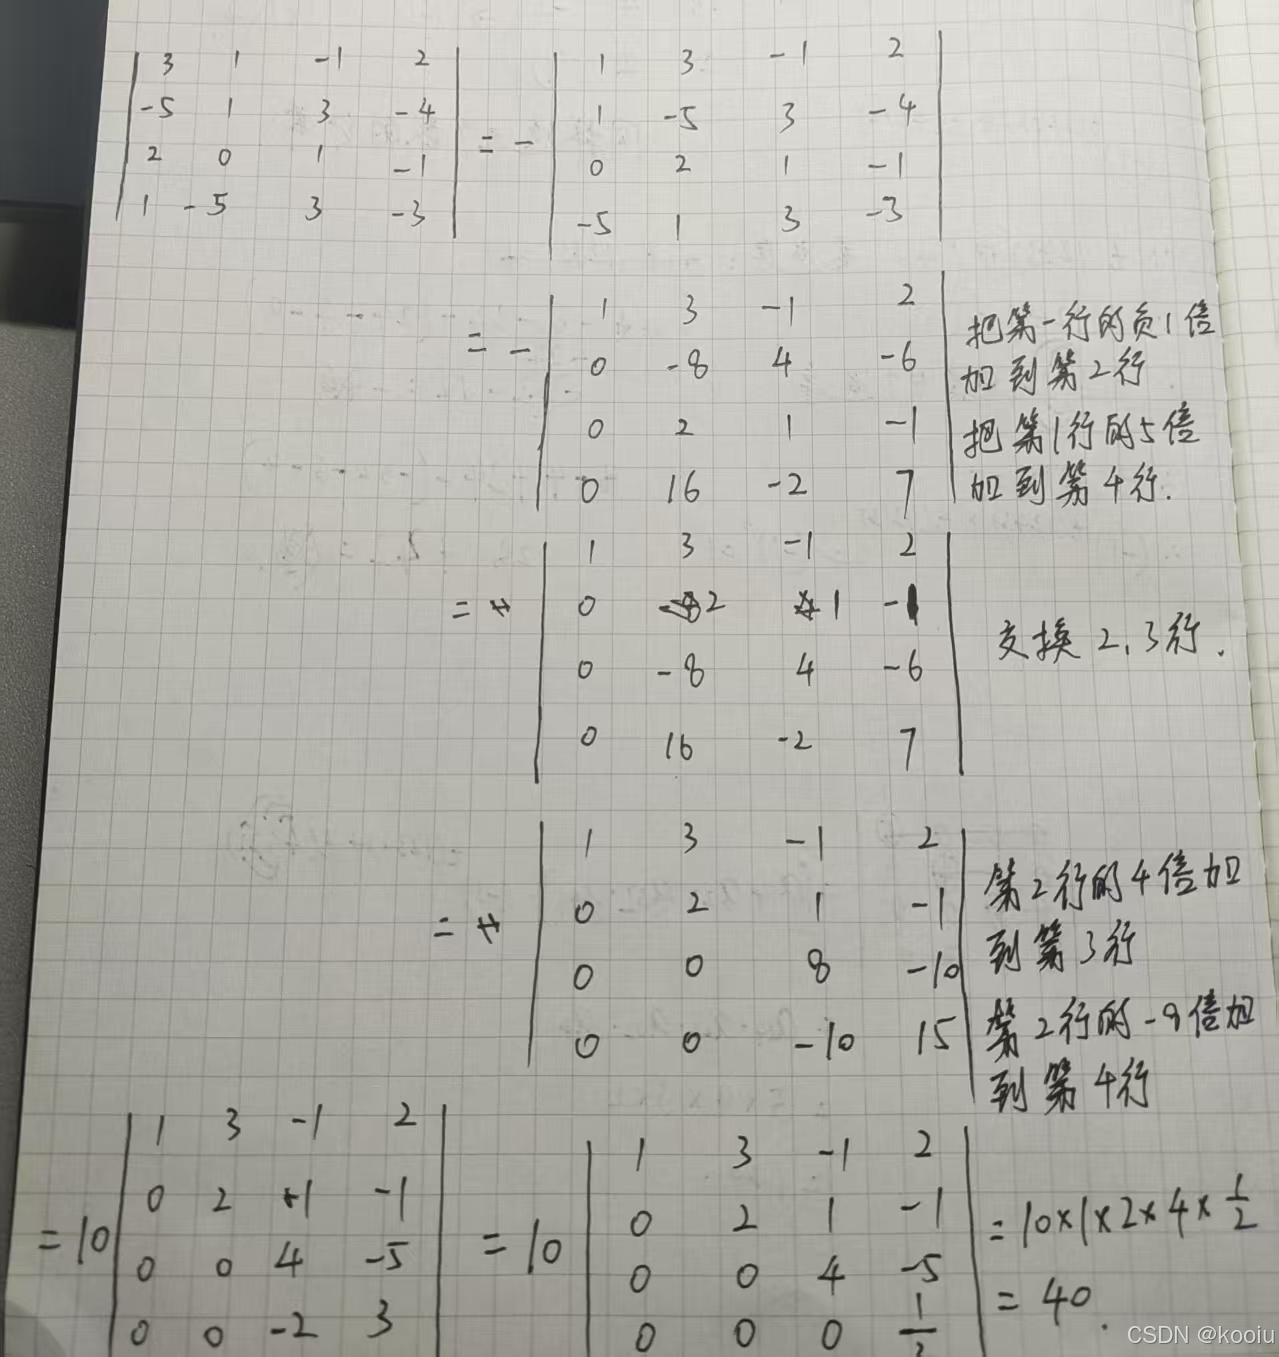 3 1 -1 2
-5 1 3 -4
2 0 1 -1
1 -5 3 -3
= -
1 3 -1 2
1 -5 3 -4
0 2 1 -1
-5 1 3 -3
= -
1 3 -1 2
0 -8 4 -6
0 2 1 -1
0 16 -2 7
把第一行的负1倍
加到第2行
把第1行的5倍
加到第4行.
= +
1 3 -1 2
0 2 1 -1
0 -8 4 -6
0 16 -2 7
交换2,3行.
= +
1 3 -1 2
0 2 1 -1
0 0 8 -10
0 0 -10 15
第2行的4倍加
到第3行
第2行的-8倍加
到第4行
= 10
1 3 -1 2
0 2 +1 -1
0 0 4 -5
0 0 -2 3
= 10
1 3 -1 2
0 2 1 -1
0 0 4 -5
0 0 0 1/2
= 10×1×2×4×1/2
= 40.
CSDN @kooiu